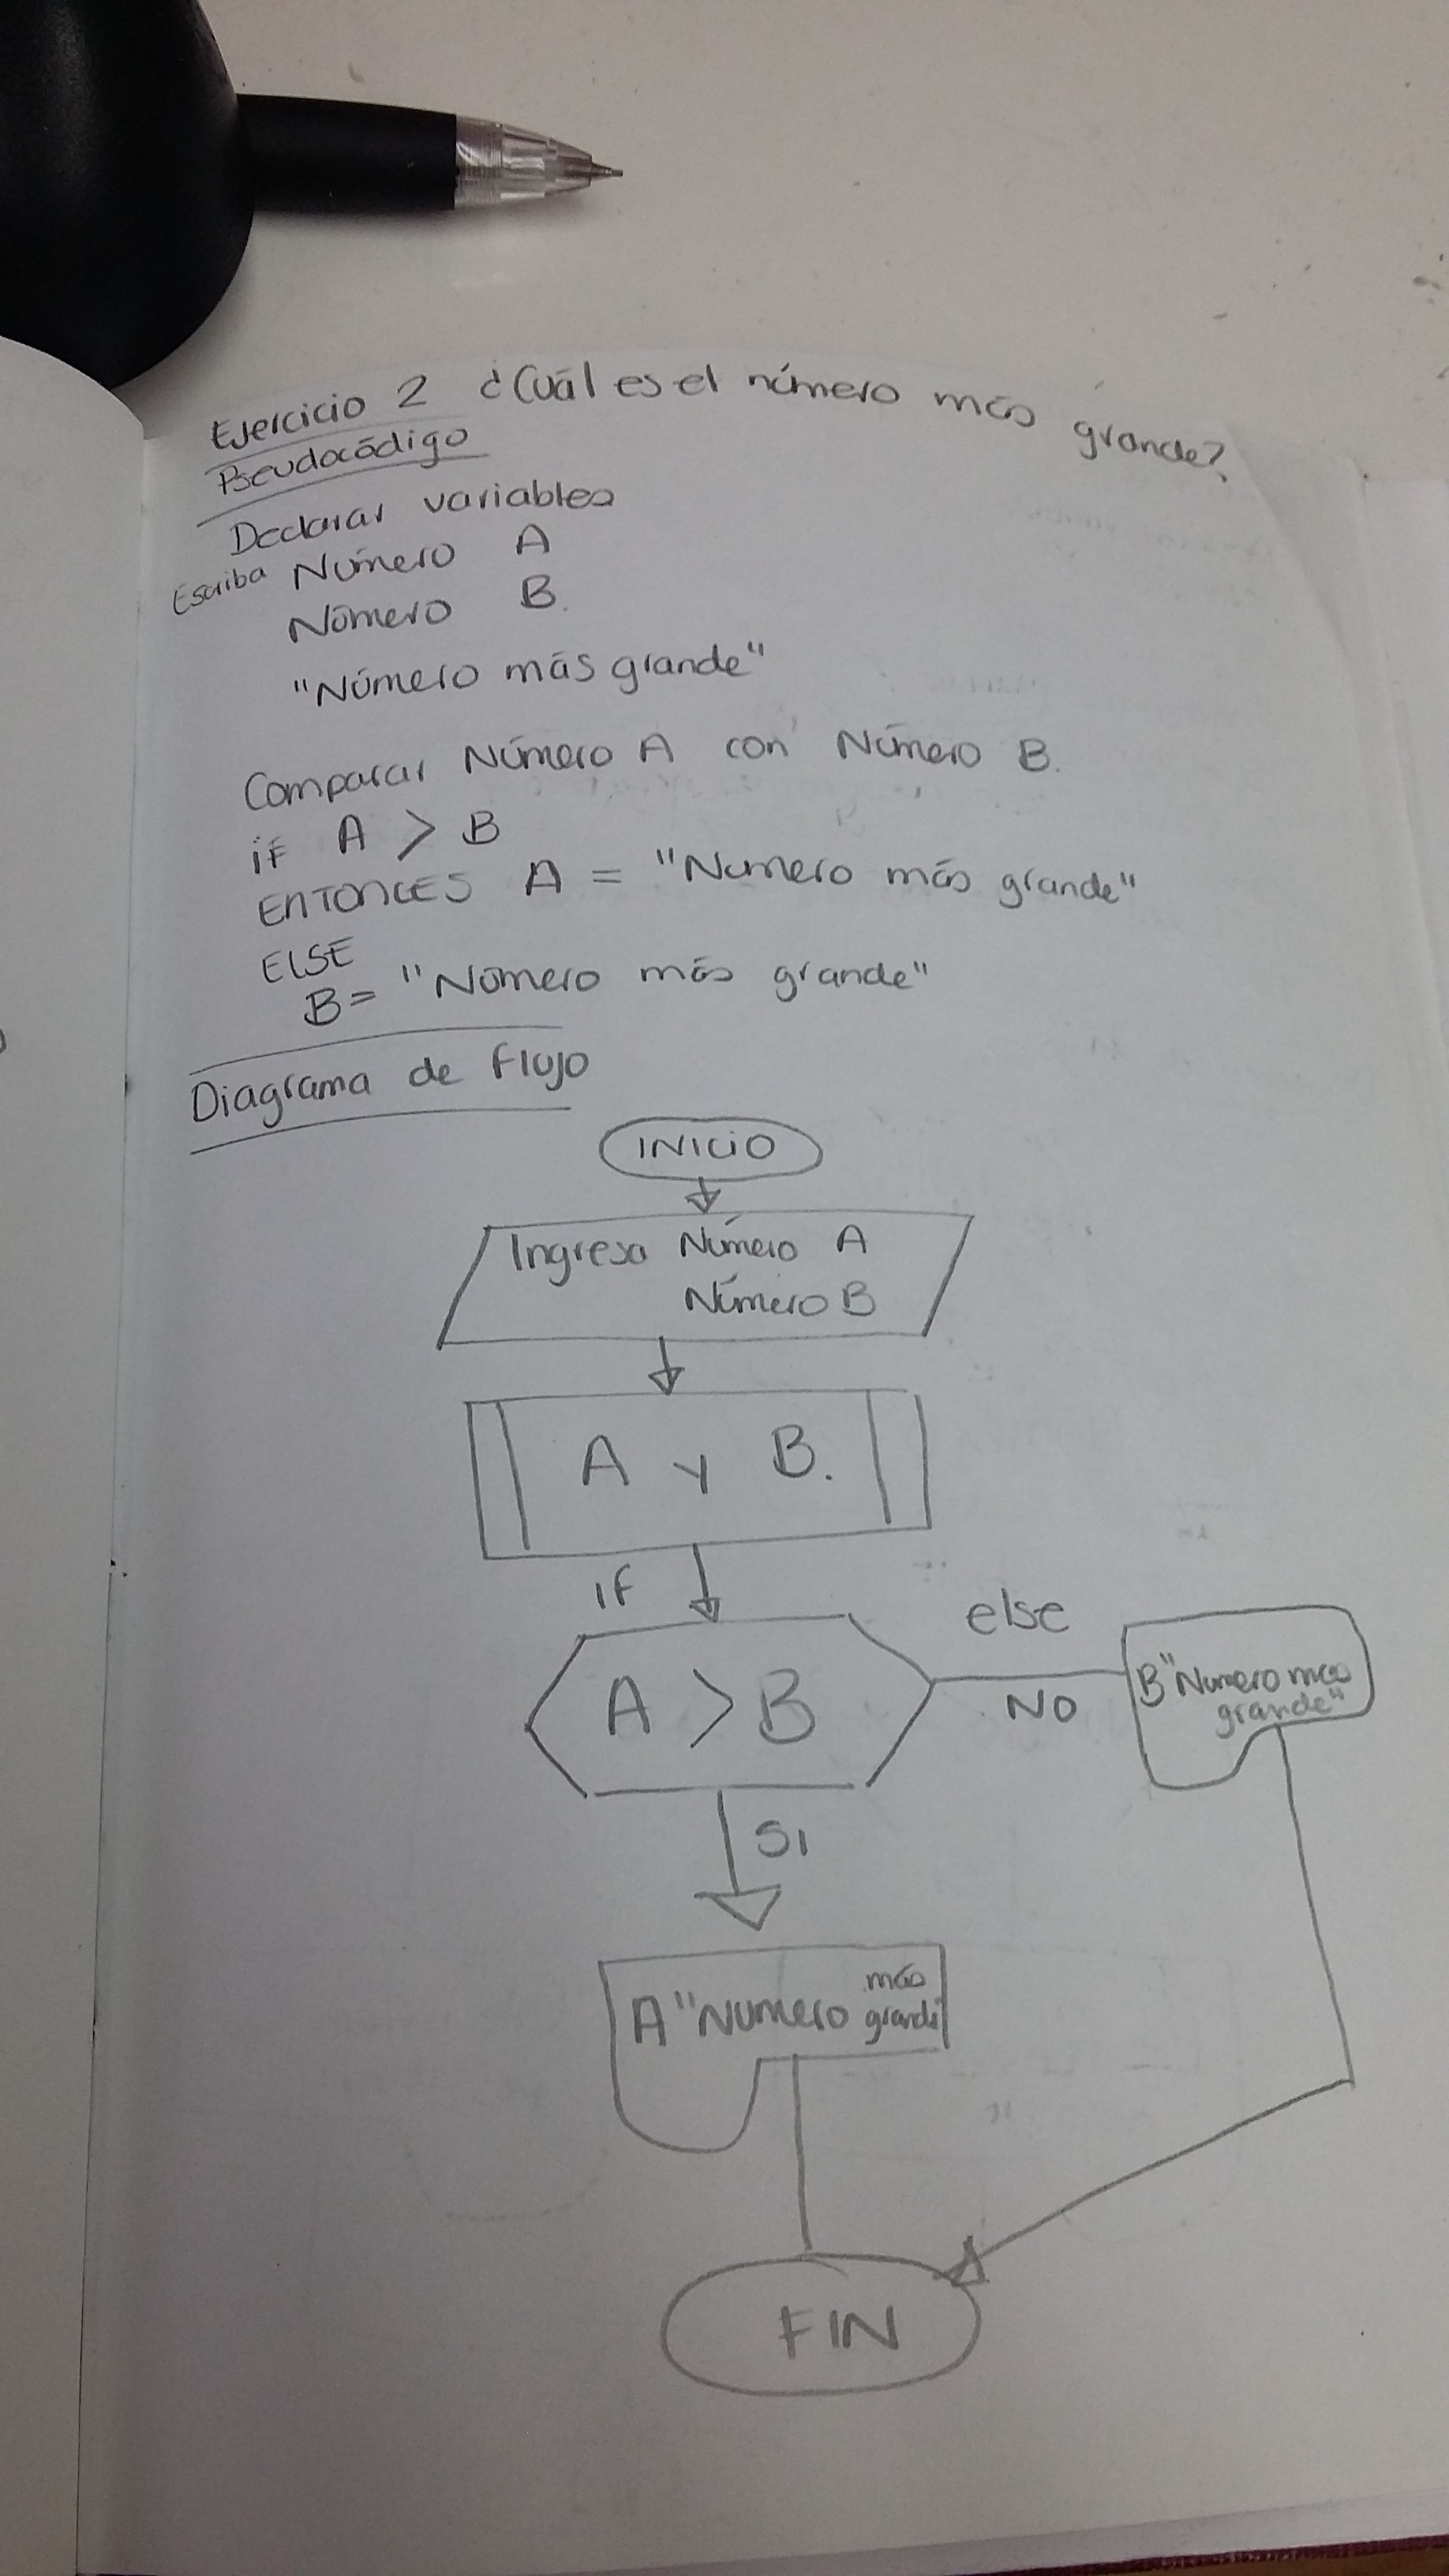 Ejercicio 2 ¿Cuál es el número más grande?
Pseudocódigo
Declarar variables
Escriba Número A
Número B.
"Número más grande"
Comparar Número A con Número B.
if A > B
ENTONCES A = "Numero más grande"
ELSE
B= "Número más grande"
Diagrama de Flujo
INICIO
Ingresa Número A
Número B
A y B.
IF
else
A > B
NO
B "Numero más
grande"
SI
A "Numero más
grande"
FIN